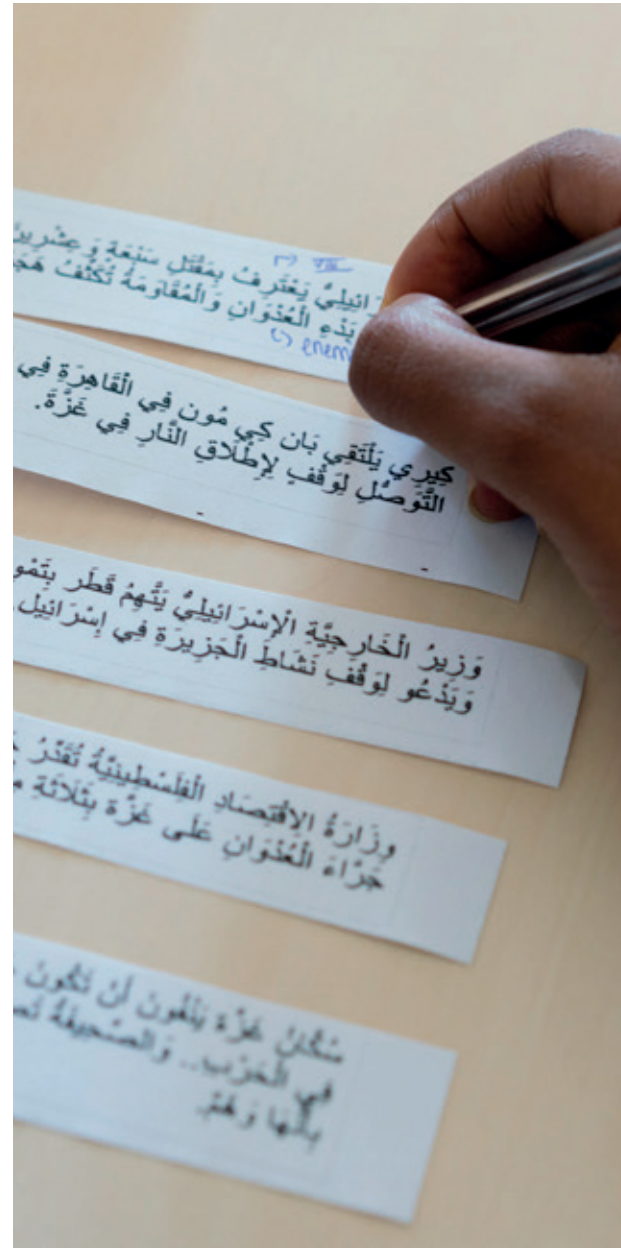 VIII
يَعْتَرِفُ بِمَقْتَلِ سَبْعَةٍ وَعِشْرِينَ
بَدْءِ الْعُدْوَانِ وَالْمُقَاوَمَةُ تُكَثِّفُ
enem
كِيرِي يَلْتَقِي بَان كِي مُون فِي الْقَاهِرَةِ فِي
التَّوَصُّلِ لِوَقْفٍ لِإِطْلَاقِ النَّارِ فِي غَزَّةَ.
وَزِيرُ الْخَارِجِيَّةِ الْإِسْرَائِيلِيُّ يَتَّهِمُ قَطَر
وَيَدْعُو لِوَقْفِ نَشَاطَ الْجَزِيرَةِ فِي إِسْرَائِيل
وِزَارَةُ الِاقْتِصَادِ الْفِلَسْطِينِيَّةُ تُقَدِّرُ
جَرَّاءَ الْعُدْوَانِ عَلَى غَزَّة بِثَلَاثَةِ
سُكَّانُ غَزَّة يَنْفُونَ أَنْ تَكُونَ
فِي الْحَرْبِ.. وَالصَّحِيفَةُ
بِأَنَّهَا وَهْمٌ.